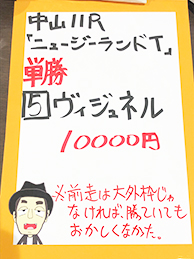 中山11R
「ニュージーランドT」
単勝
5 ヴィジュネル
10000円
※前走は大外枠じゃ
なければ、勝っていても
おかしくなかった。